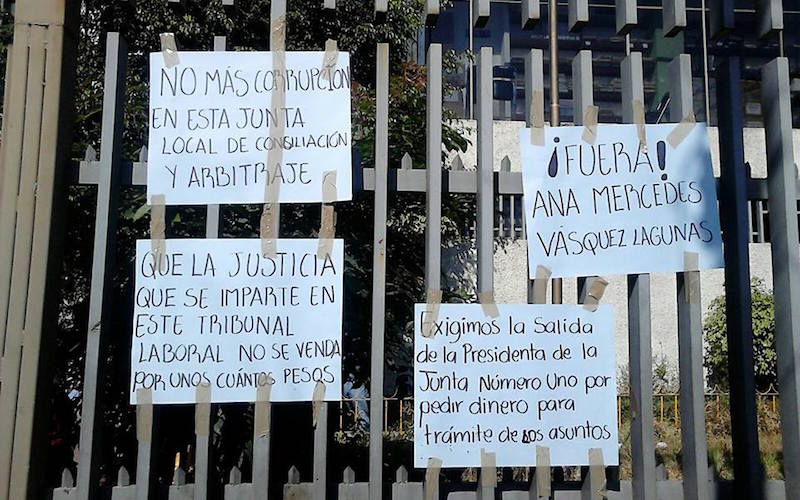 NO MÁS CORRUPCIÓN
EN ESTA JUNTA
LOCAL DE CONSILIACIÓN
Y ARBITRAJE
QUE LA JUSTICIA
QUE SE IMPARTE EN
ESTE TRIBUNAL
LABORAL NO SE VENDA
POR UNOS CUÁNTOS PESOS
¡FUERA!
ANA MERCEDES
VÁSQUEZ LAGUNAS
Exigimos la Salida
de la Presidenta de la
Junta Número Uno por
pedir dinero para
trámite de los asuntos